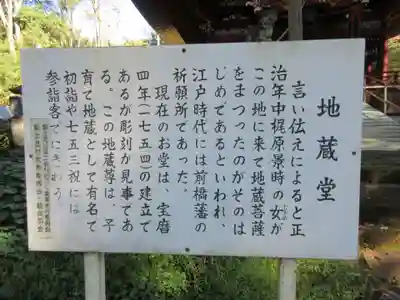 地蔵堂
言い伝えによると正
治年中梶原景時の女が
この地に来て地蔵菩薩
をまつったのがそのは
じめであるといわれ、
江戸時代には前橋藩の
祈願所であった。
現在のお堂は、宝暦
四年(一七五四)の建立で
あるが彫刻が見事であ
る。この地蔵尊は、子
育て地蔵として有名で
初詣や七五三祝には
参詣客でにぎわう